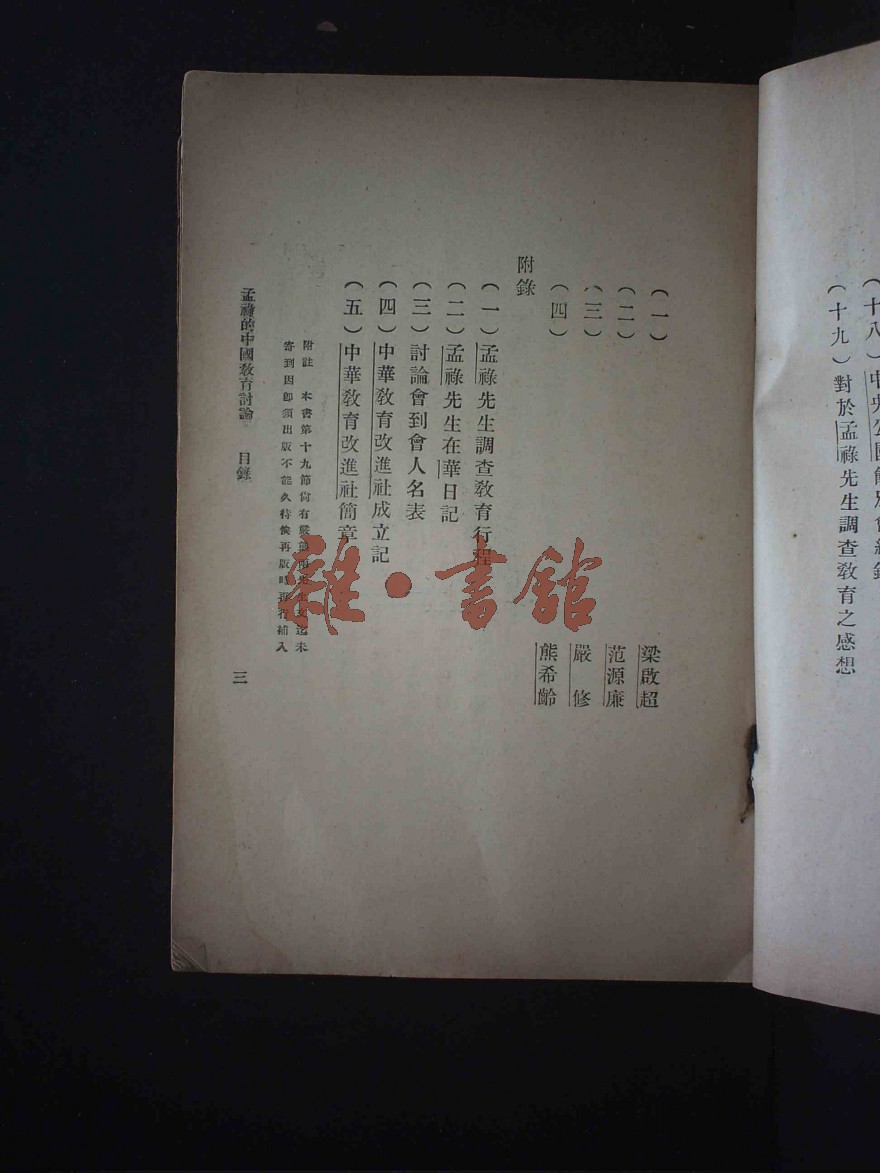 （十八）中央公園餞別會紀錄
（十九）對於孟祿先生調查敎育之感想
（一）　梁啟超
（二）　范源廉
（三）　嚴　修
（四）　熊希齡
附錄
（一）孟祿先生調查敎育行程
（二）孟祿先生在華日記
（三）討論會到會人名表
（四）中華敎育改進社成立記
（五）中華敎育改進社簡章
附註　本書第十九節尙有嚴範
未
寄到因卽須出版不能久待俟再版時再行補入
孟祿的中國敎育討論　目錄
三
雜·書館